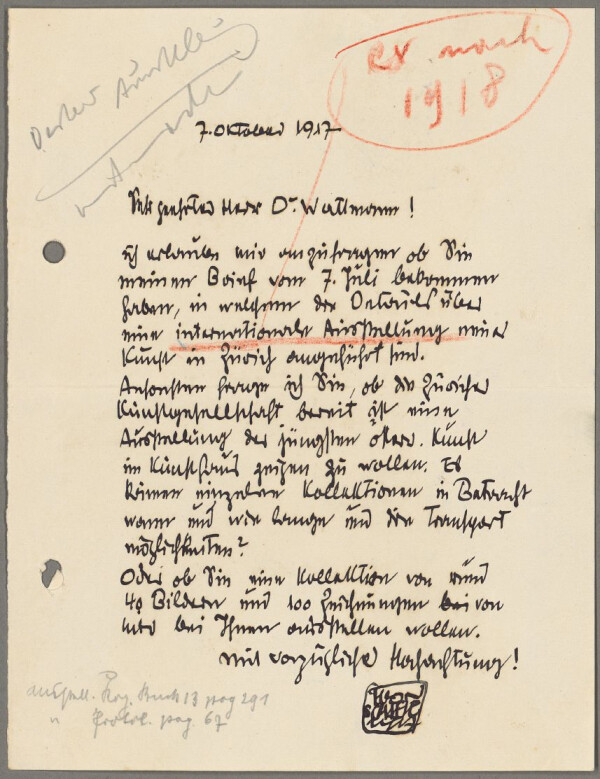 ev. nach
1918
7. Oktober 1917
Sehr geehrter Herr Dr. Wattmann!
ich erlaube mir anzufragen ob Sie
meinen Brief vom 7. Juli bekommen
haben, in welchem die Details über
eine internationale Ausstellung neuer
Kunst in Zürich angeführt sind.
Ansonsten frage ich Sie, ob die Züricher
Künstgesellschaft bereit ist eine
Ausstellung der jüngsten österr. Künst
im Künsthaus zeigen zu wollen. Es
kämen einzelne Kollektionen in Betracht
wann und wie lange und die Transport
möglichkeiten?
Oder ob Sie eine Kollektion von rund
40 Bildern und 100 Zeichnungen bei von
mir bei Ihnen ausstellen wollen.
mit vorzüglicher Hochachtung!
Egon
Schiele
1917
Ausstell. Buch 13 pag 291
" Protok. pag. 67